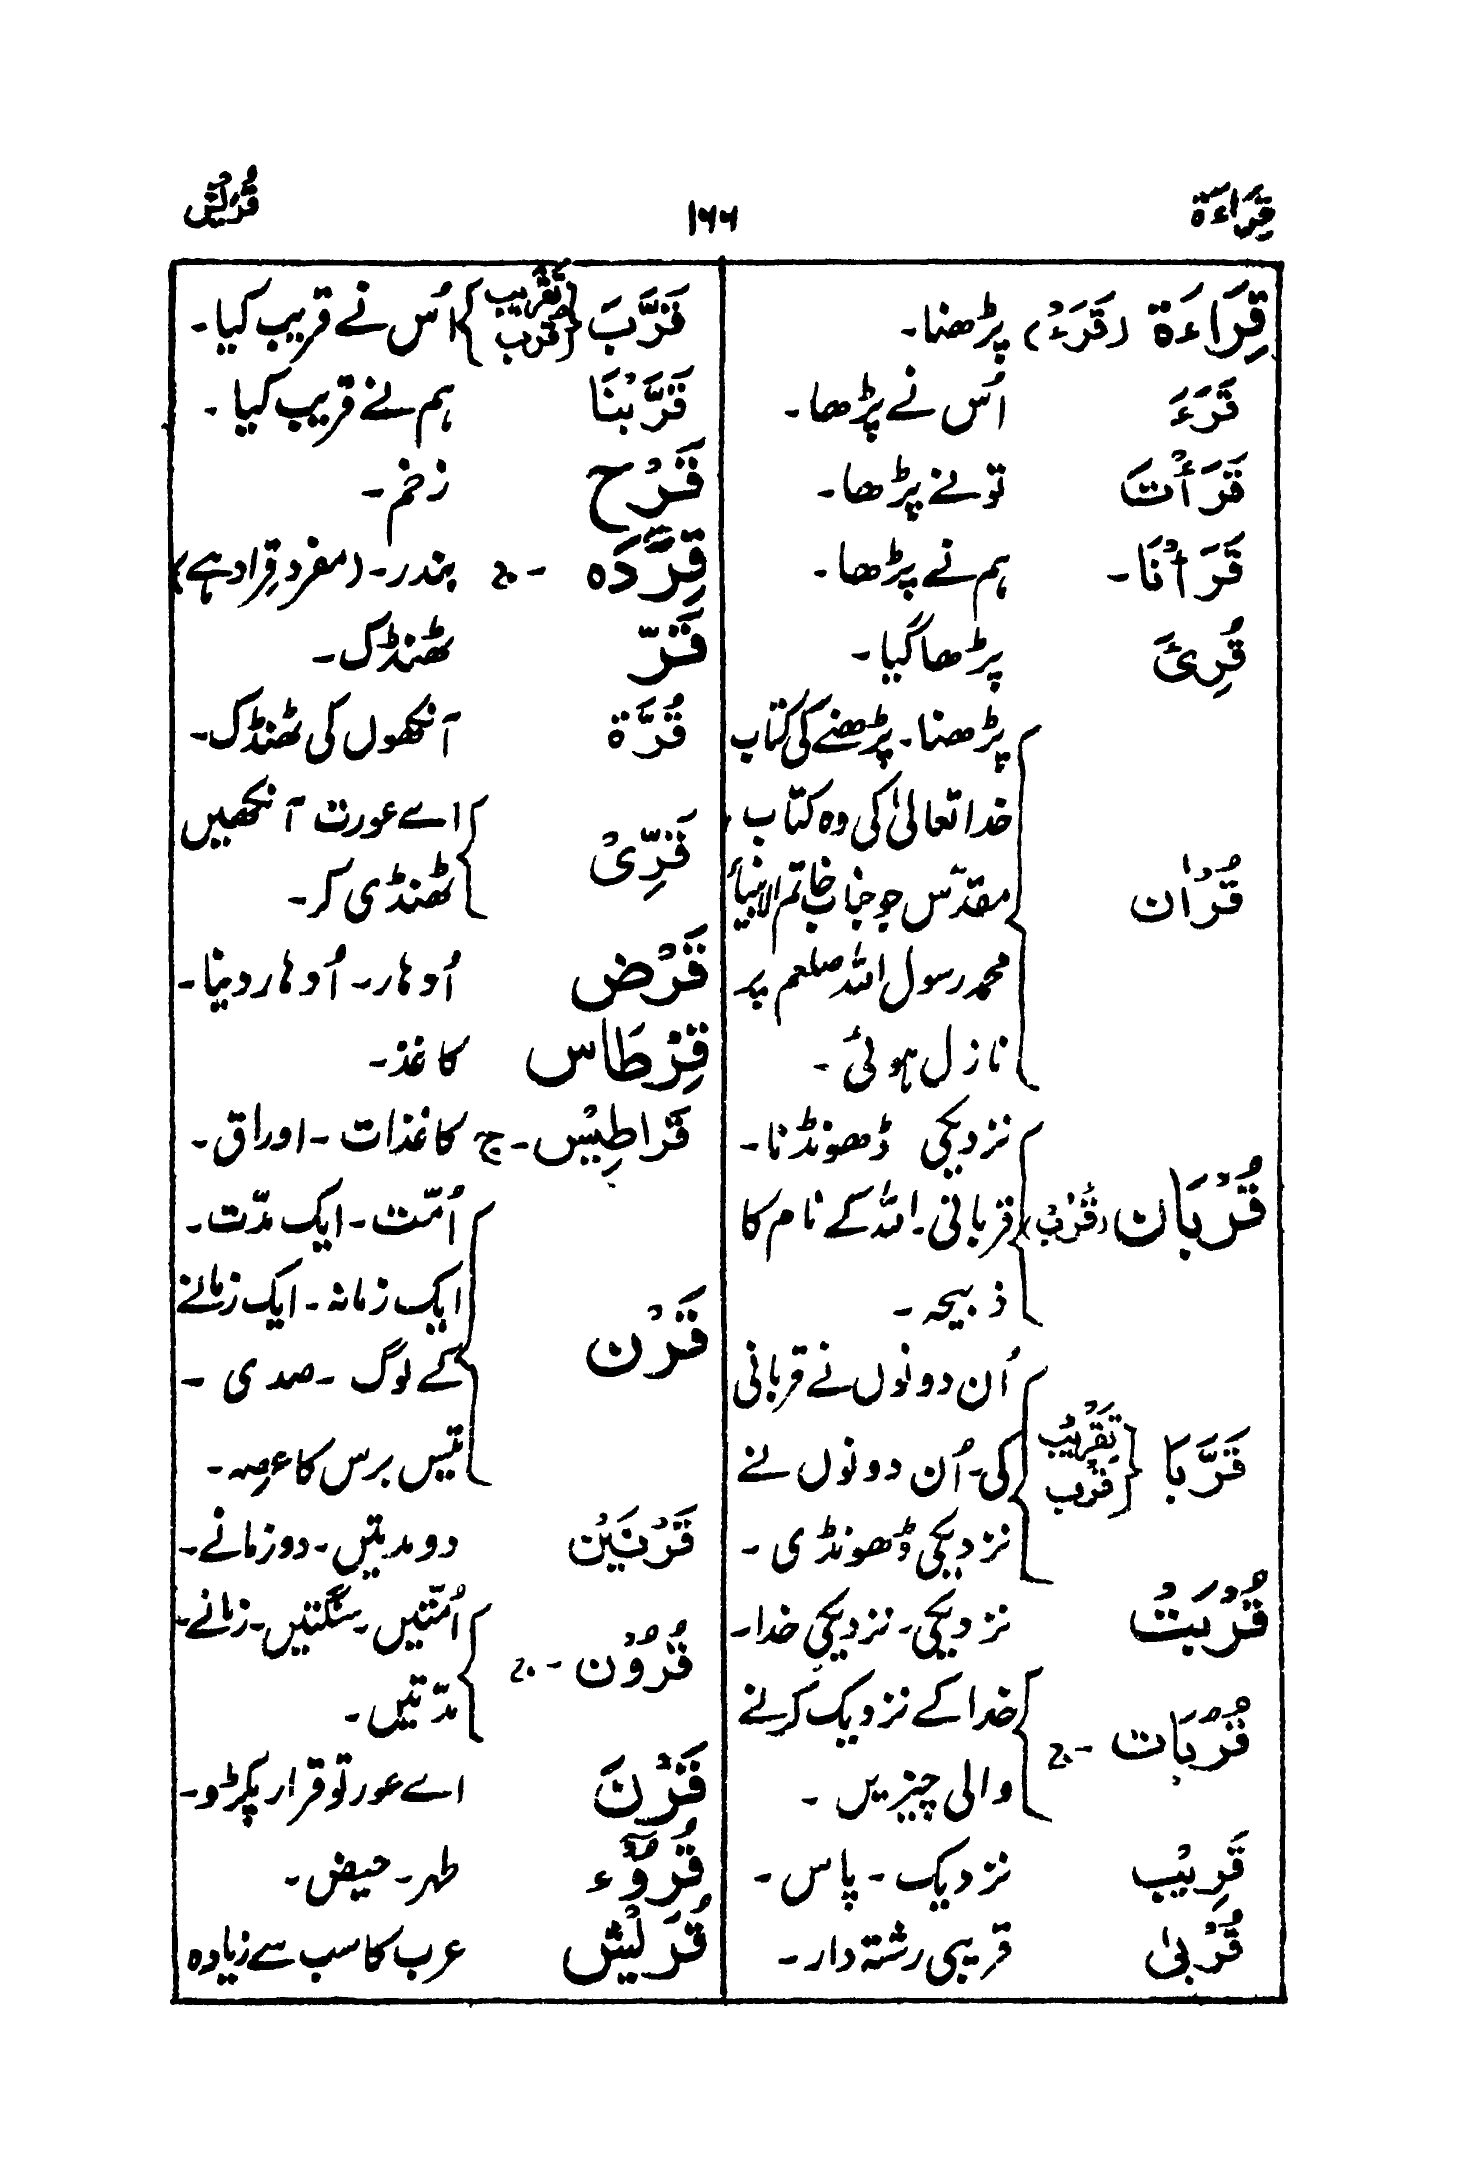 قِرَاءَة ۱۶۶ قُرَیْش
قِرَاءَة (قَرَءْ) پڑھنا۔
قَرَءَ اُس نے پڑھا۔
قَرَأْتَ تونے پڑھا۔
قَرَأْنَا۔ ہم نے پڑھا۔
قُرِئَ پڑھا گیا۔
پڑھنا۔ پڑھنے کی کتاب
خدا تعالیٰ کی وہ کتاب
قُرْاٰن مقدّس جو جناب خاتم الانبیاء
محمد رسول اللہ صلعم پر
نازل ہوئی۔
نزدیکی ڈھونڈنا۔
قُرْبَان (قُرْبٌ) قربانی۔ اللہ کے نام کا
ذبیحہ۔
اُن دونوں نے قربانی
قَرَّبَا {تَقْرِیْب قُرْب} کی۔ اُن دونوں نے
نزدیکی ڈھونڈی۔
قُرْبَتْ نزدیکی۔ نزدیکیِ خدا۔
قُرُبَات ۔ج خدا کے نزدیک کرنے
والی چیزیں۔
قَرِیْب نزدیک۔ پاس۔
قُرْبیٰ قریبی رشتہ دار۔
قَرَّبَ {تَقْرِیْب قُرْب} اُس نے قریب کیا۔
قَرَّبْنَا ہم نے قریب کیا۔
قَرْح زخم۔
قِرَدَه ۔ج بندر۔ (مفرد قِراد ہے)
قَرّ ٹھنڈک۔
قُرَّة آنکھوں کی ٹھنڈک۔
قَرِّیْ اے عورت آنکھیں
ٹھنڈی کر۔
قَرْض اُدھار۔ اُدھار دینا۔
قِرْطَاس کاغذ۔
قَرَاطِیْس۔ ج کاغذات۔ اوراق۔
اُمّت۔ ایک مدّت۔
ایک زمانہ۔ ایک زمانے
قَرْن کے لوگ۔ صدی۔
تیس برس کا عرصہ۔
قَرْنَیْن دو مدتیں۔ دو زمانے۔
قُرُوْن ۔ج اُمّتیں۔ سنگتیں۔ زمانے۔
مدّتیں۔
قَرْنَ اے عورتو قرار پکڑو۔
قُرُوْٓء طہر۔ حیض۔
قُرَیْش عرب کا سب سے زیادہ